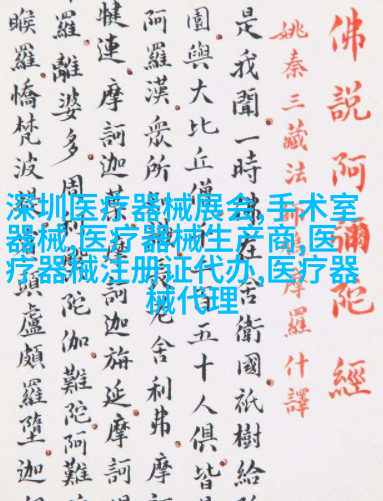 佛說阿彌陀經
姚秦三藏法師鳩摩羅什譯
是我聞一時佛在舍衛國祇樹給
園與大比丘僧千二百五十人俱皆
阿羅漢眾所知識長老舍利弗摩訶
犍連摩訶迦葉摩訶迦旃延摩訶
羅離婆多周利槃陀伽難陀阿難
睺羅憍梵波提賓頭盧頗羅墮迦
深圳医疗器械展会,手术室
器械,医疗器械生产商,医
疗器械注册证代办,医疗器
械代理